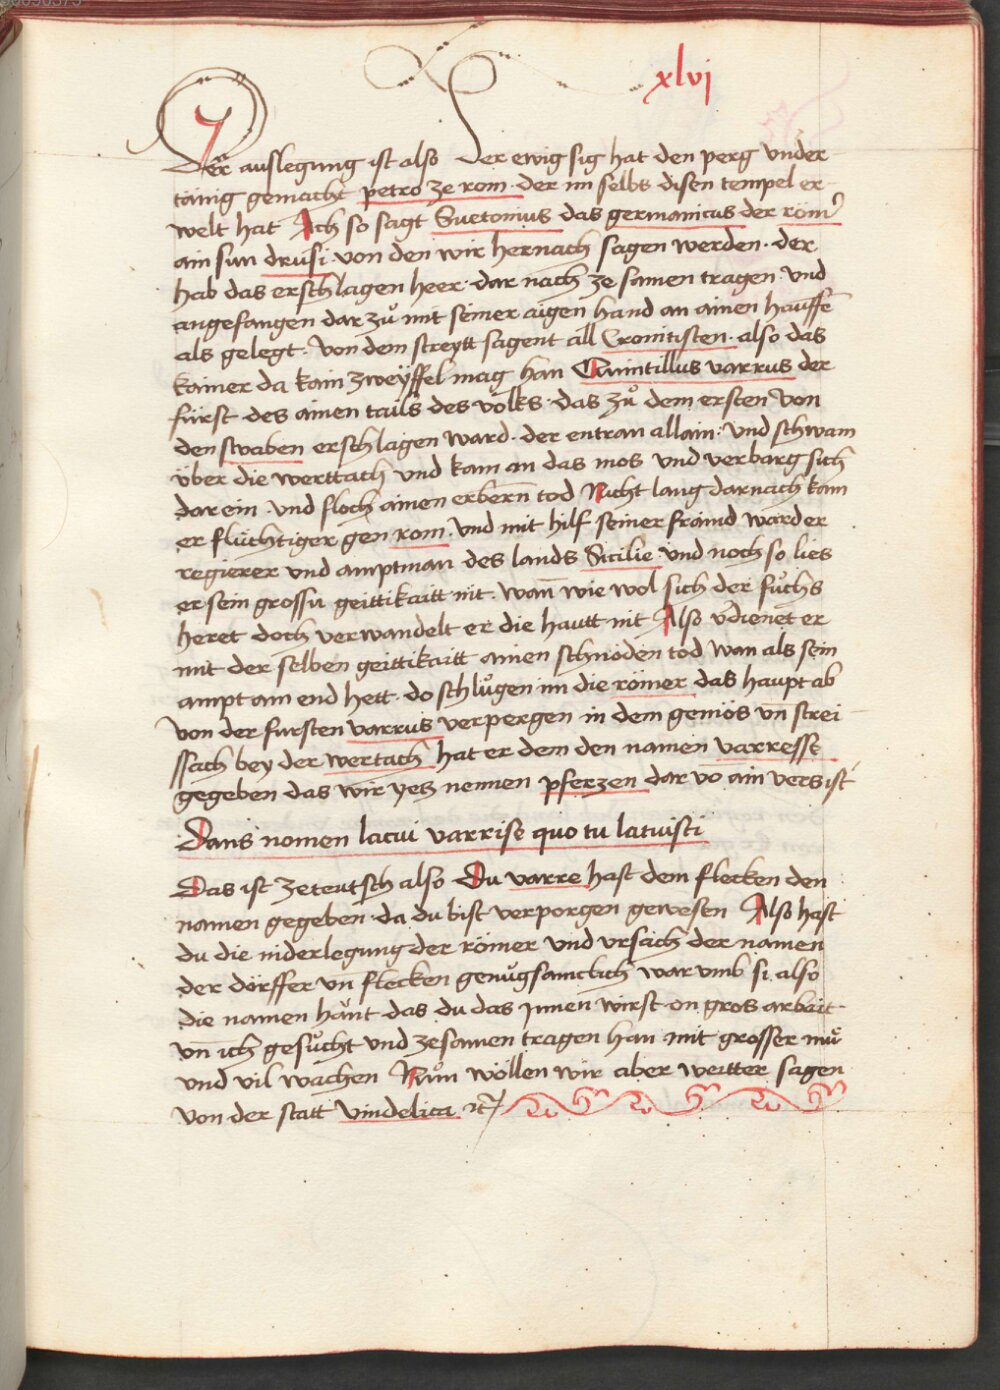 xlvi
Der auslegung ist also Der ewig sig hat den perg vnder
tänig gemacht petro ze rom · der im selbs disen tempel er
welt hat Ach so sagt Suetonius das germanicus der röm̄
ain sun drusi · von den wir hernach sagen werden · der
hab das erschlagen heer · dar nach ze samen tragen · vnd
angefangen dar zů mit seiner aigen hand an ainen hauffē
als gelegt · von dem streytt sagent all Cronitisten · also das
kainer da kain zweyffel mag han Quintillus varrus der
fürst · des ainen tails des volks · das zů dem ersten von
den swaben erschlagen ward · der entran allain · vnd schwam
über die werttach vnd kam an das mos vnd verbarg sich
dar ein · vnd floch ainen erbern̄ tod Nicht lang darnach kam
er flüchtiger gen rom · vnd mit hilf seiner fraind ward er
regierer vnd amptman des lands Sicilie vnd noch so lies
er sein grossu geittikaitt nit · wan̄ wie wol sich der fuchs
heret doch verwandelt er die hautt nit Also v̄dienet er
mit der selben geittikaitt ainen schnöden tod wan als sein
ampt am end hett · do schlůgen im die römer das haupt ab
von der fursten varrus verpergen in dem gemös vn̄ strei
ssach bey der wertach hat er dem den namen varresse
gegeben das wir yetz nennen pferzen dar vō ain vers ist
Dans nomen lacui varrise quo tu latuisti
Das ist zeteutsch also Du varre hast dem flecken den
namen gegeben · da du bist verporgen gewesen Also hast
du die niderlegung der römer vnd vrsach der namen
der dörffer vn̄ flecken genůgsamclich war vmb si also
die namen hånt · das du das Innen wirst · on gros arbait ·
vn̄ ich gesůcht vnd zesamen tragen han mit grosser mů
vnd vil wachen Nůn wöllen wir aber weitter sagen
von der statt vindelica ⁊c̄